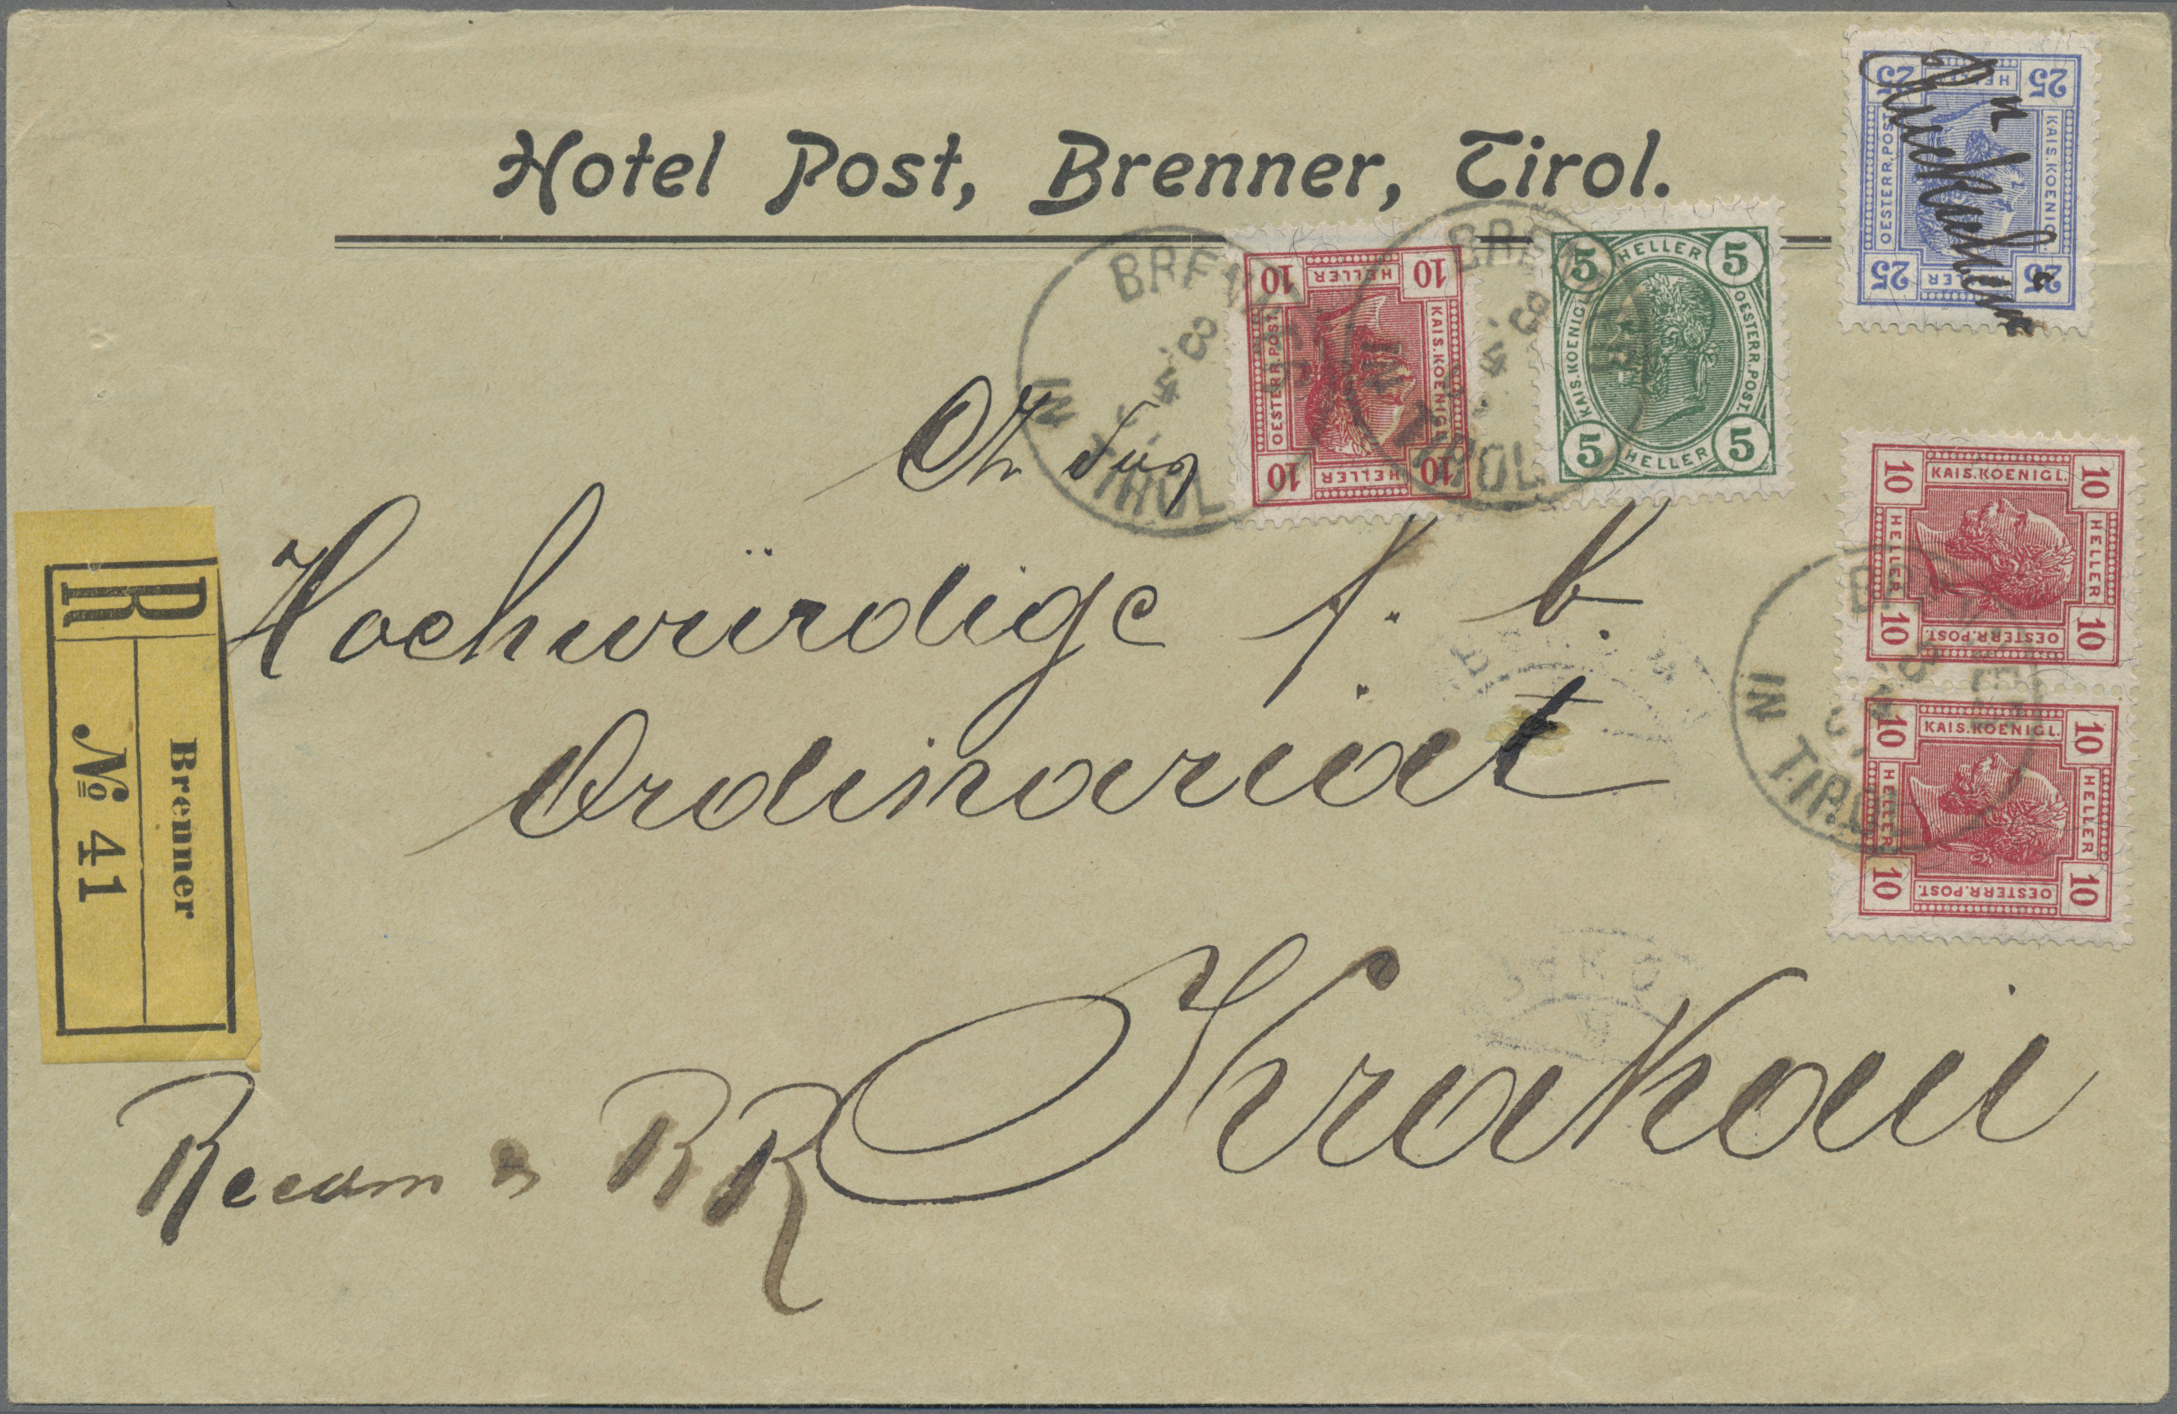 Hotel Post, Brenner, Tirol.
25 25 25 25
KAIS. KOENIGL.
OESTERR. POST.
HELLER
10 HELLER 10
OESTERR. POST.
KAIS. KOENIGL.
10 HELLER 10
5 HELLER 5
KAIS. KOENIGL.
OESTERR. POST.
5 HELLER 5
BRENNER
IN TIROL
BRENNER
IN TIROL
10 KAIS. KOENIGL. 10
HELLER HELLER
10 OESTERR. POST. 10
10 KAIS. KOENIGL. 10
HELLER HELLER
10 OESTERR. POST. 10
BRENNER
IN TIROL
Hochwürdige f. b.
Ordinariat
Krakau
R
Brenner
No 41
Recom
RR